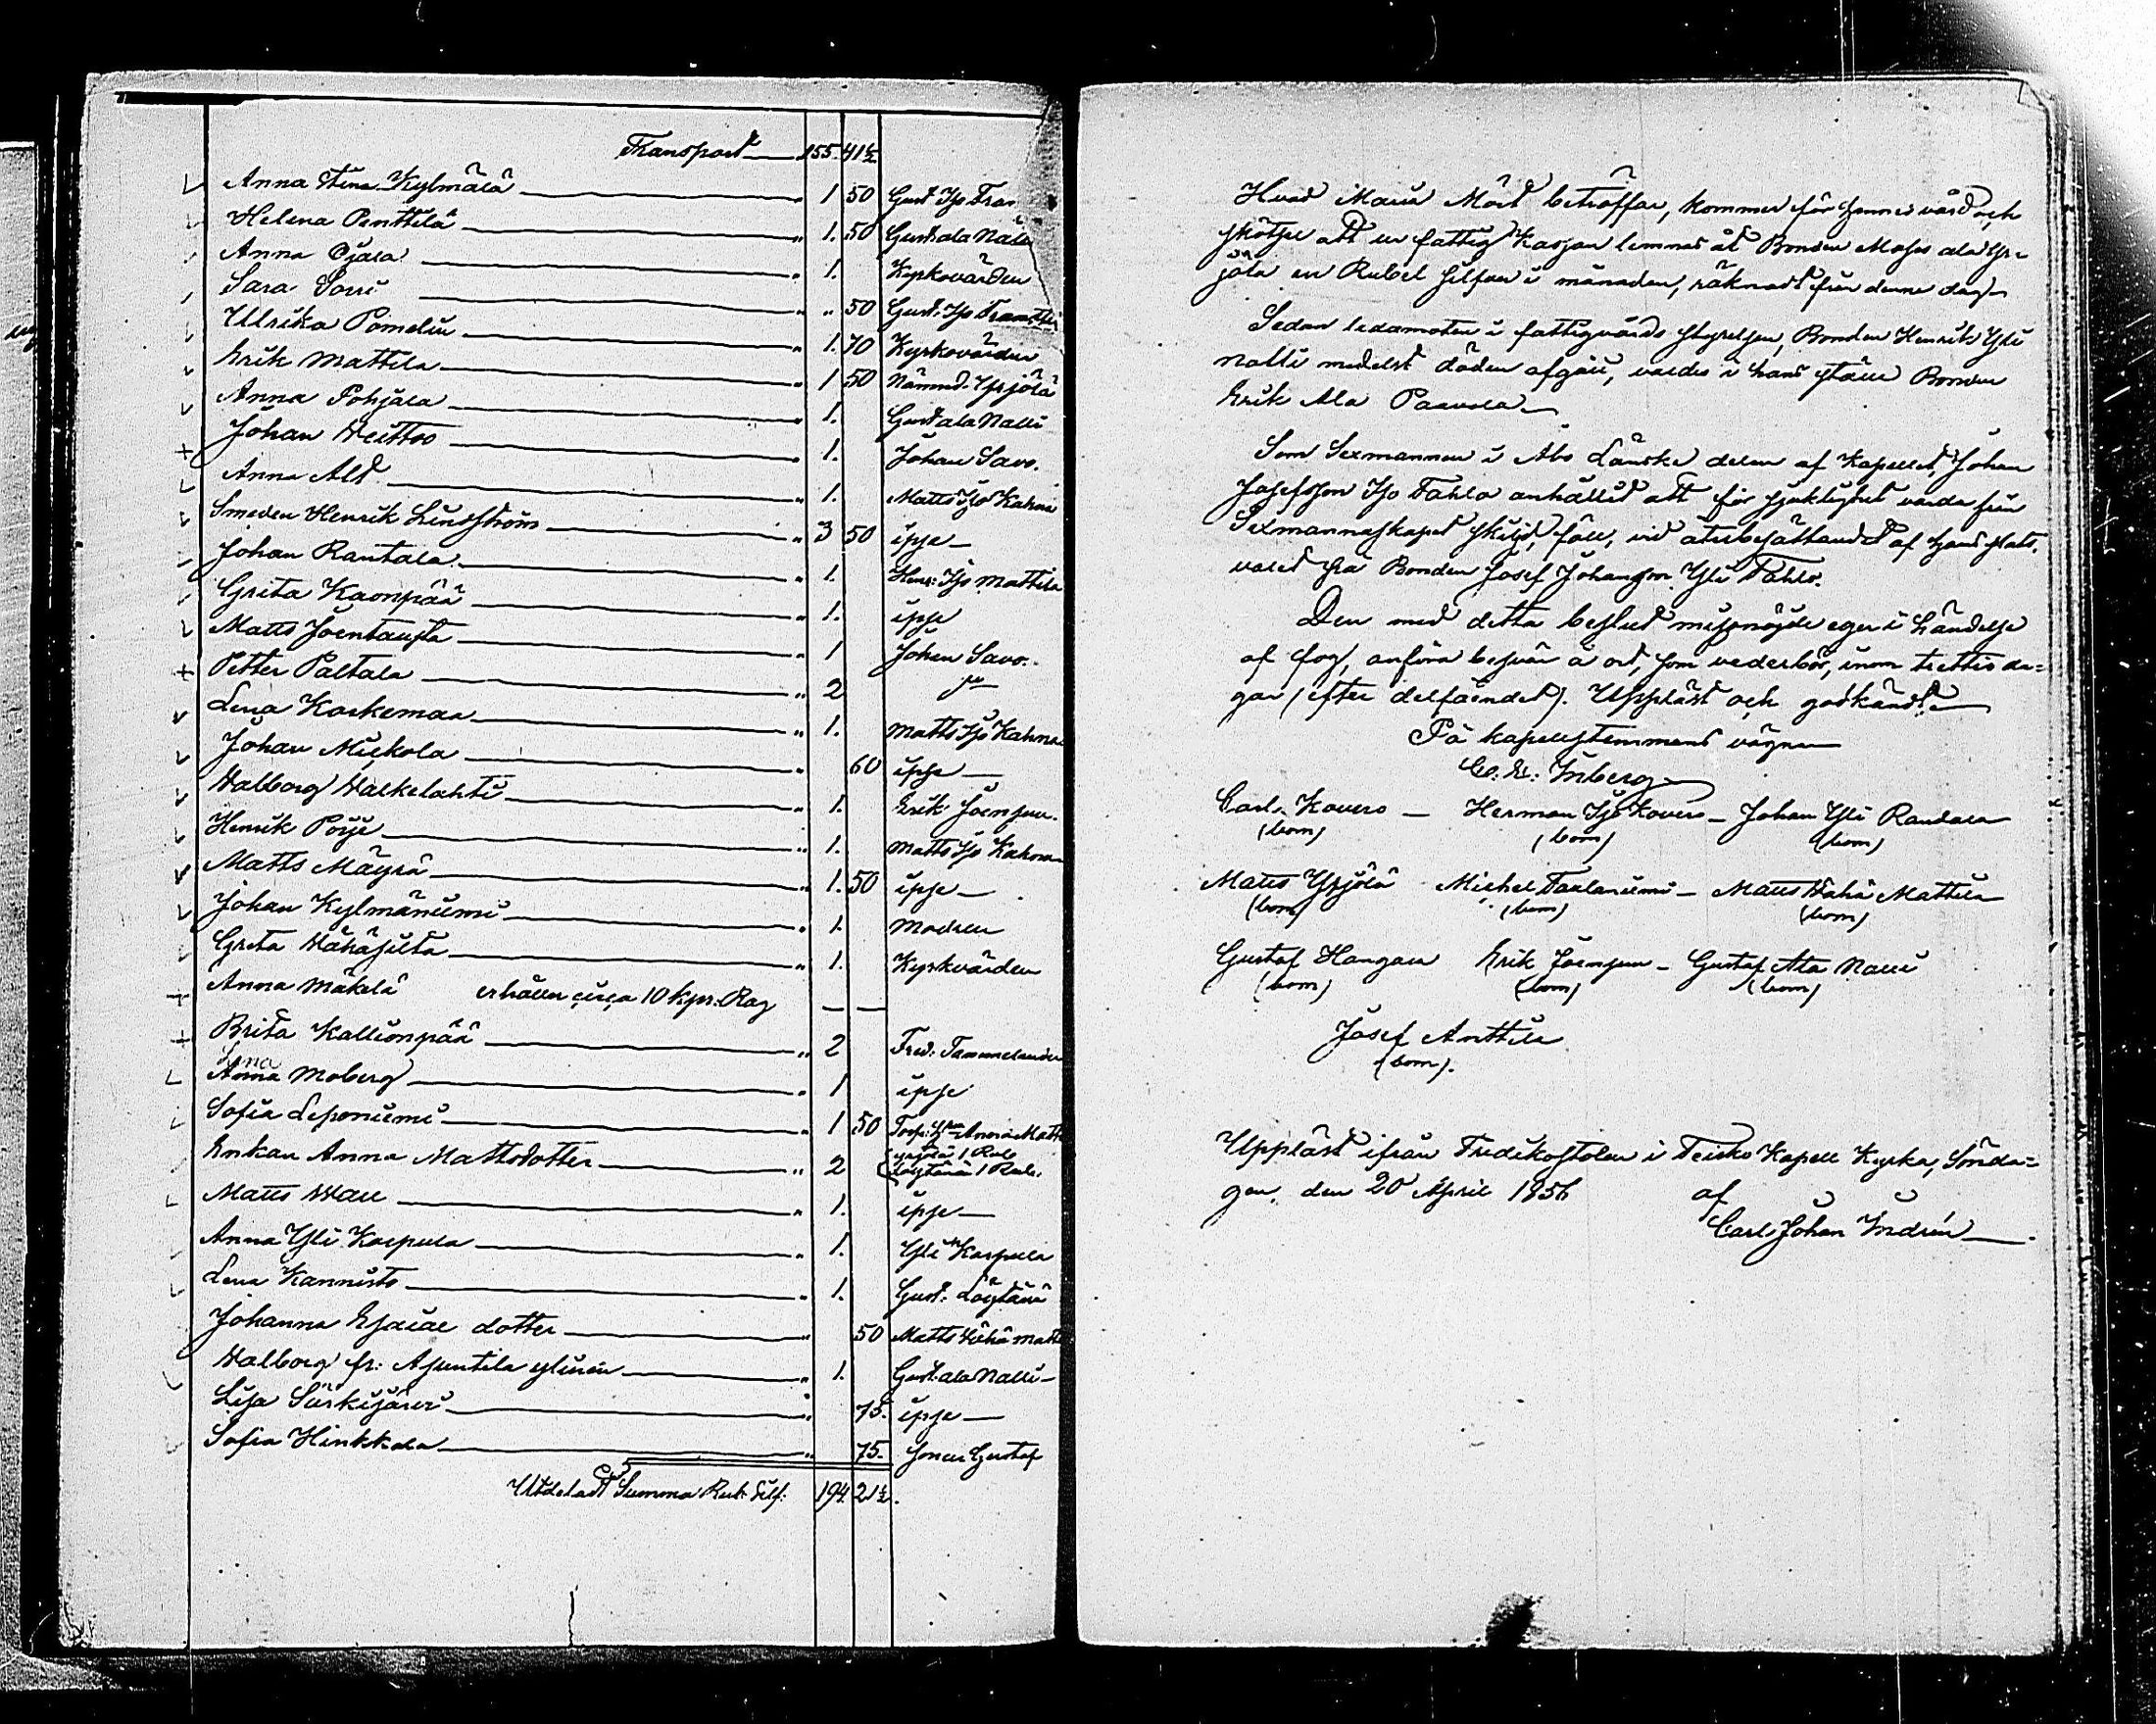 Transport 155. 41½
Anna Stina Kylmälä " 1 50 Gust. Iso Tran
Helena Penttilä " 1. 50 Gust. ala Nalli
Anna Ojala " 1. Kyrkovärden
Sara Sorri " " 50 Gust. Iso
Ulrika Pomelin " 1. 70 Kyrkovärden
Erik Mattila " 1 50 Nämnd. Yrjölä
Anna Pohjala " 1. Gust ala Nalli
Johan Weittos " 1. Johan Savo.
Anna Ald " 1. Matts Iso Kahna
Smeden Henrik Lindström " 3 50 ipse
Johan Rantala " 1. Henr: Iso Mattila
Greta Kaonpää " 1. ipse
Matts Joentausta " 1 Johan Savo.
Petter Paltala " 2
Lena Koskemaa " 1. Matts Iso Kahna
Johan Mickola " 60 ipse
Walborg Walkelahti " 1. Erik Joensuu.
Henrik Porje " 1. Matts Iso Kahna
Matts Mäyrä " 1. 50 ipse
Johan Kylmäniemi " 1. Modren
Greta Wähäsilta " 1. Kyrkvärden
Anna Mäkelä erhåller circa 10 kpr. Råg — —
Brita Kallionpää " 2 Fred. Tammelander
Lena
Anna Moberg " 1 ipse
Sofia Leponiemi " 1 50 Anna Matts
Enkan Anna Mattsdotter " 2 Yrjölä 1 Rub.
Löytänä 1 Rub.
Matts Wall " 1. ipse
Anna Yli Kaspula " 1. Yli Kaspula
Lena Kannisto " 1. Gust. Löytänä
Johanna Esaiae dotter " 50 Matts Wähä Matti
Walborg fr: Asuntila ylinen " 1. Gust. ala Nalli
Lisa Särkijärvi " 75. ipse
Sofia Hinkkala " 75. sonen Gustaf
Utdeladt Summa Rub. Silf. 194. 21½.
Hvad Maria Mört beträffar, kommer för hennes vård och
skötsel att ur fattig Kassan lemnas åt Bonden Moses ala Yr-
jölä en Rubel Silfver i månaden, räknadt från denne dag
Sedan ledamoten i fattigvårds styrelsen, Bonden Henrik Yli
Nalli medelst döden afgått, valdes i hans ställe Bonden
Erik Ala Paavola
Som Sexmannen i Åbo Länska delen af Kapellet, Johan
Josefsson Iso Pahlo anhållit att för sjuklighet varda från
Sexmannaskapet skiljd, föll, vid återbesättandet af hans plats,
valet på Bonden Josef Johansson Yli Pahlo.
Den med detta beslut missnöjde eger i händelse
af fog, anföra besvär å ort, som vederbör, inom trettio da=
gar (efter delfåendet). Uppläst och godkändt
På kapellstemmans vägnar
C. E. Inberg
Carl Kovero — Herman Iso Kovero — Johan Yli Randala
(bom) (bom) (bom)
Matts Yrjölä Michel Taulaniemi — Matts Wähä Mattila
(bom) (bom) (bom)
Gustaf Hangas Erik Joensuu — Gustaf Ala Nalli
(bom) (bom) (bom)
Josef Anttila
(bom).
Uppläst ifrån Predikostolen i Teisko Kapell Kyrka, Sönda=
gen, den 20 April 1856 af
Carl Johan Indrén